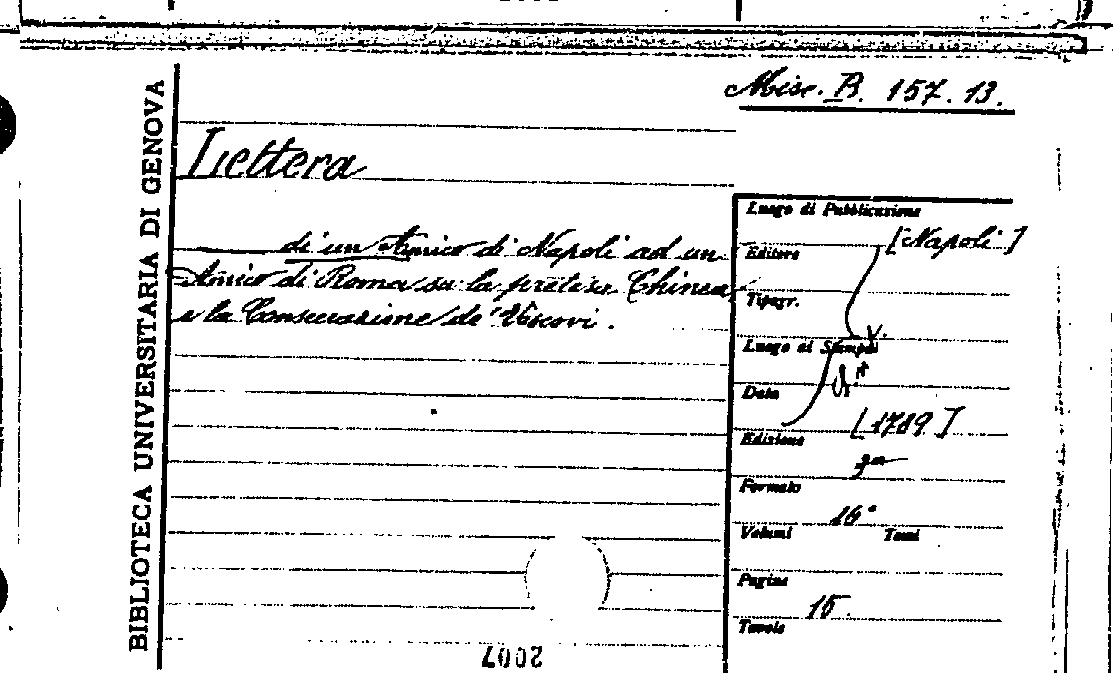 Misc. B. 157.13.
BIBLIOTECA UNIVERSITARIA DI GENOVA
Lettera
di un Amico di Napoli ad un
Amico di Roma su la pretesa Chinea,
e la Consecrazione de' Vescovi.
Luogo di Pubblicazione
[Napoli]
Editore
Tipogr.
Luogo di Stampa
Data
[1789]
Edizione
3a
Formato
16°
Volumi Tomi
Pagine
15.
Tavole
2007